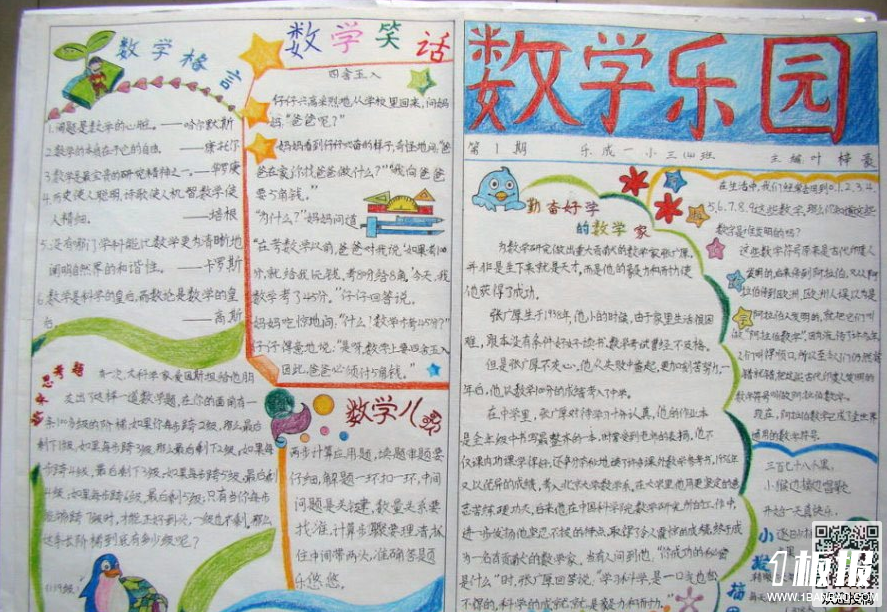 数学格言
1.问题是数学的心脏。——哈尔默斯
2.数学的本质在于它的自由。——康托尔
3.数学是最宝贵的研究精神之一。——华罗庚
4.历史使人聪明,诗歌使人机智,数学使
人精细。——培根
5.没有哪门学科能比数学更为清晰地
阐明自然界的和谐性。——卡罗斯
6.数学是科学的皇后,而数论是数学的皇
后。——高斯
思考题
有一次,大科学家爱因斯坦给他朋
友出了这样一道数学题,在你的面前有一
条100多级的阶梯。如果你每步跨2级,那么最后
剩下1级,如果每步跨3级,那么最后剩下2级,如果每
步跨4级,最后剩下3级,如果每步跨5级,最后剩
4级,如果每步跨6级,最后剩5级;只有当你每步
能够跨7级时,才能正好到头,一级也不剩。那么
这条长阶梯到底有多少级呢?
(119级)
数学笑话
四舍五入
仔仔兴高采烈地从学校里回来,问妈
妈:“爸爸呢?”
妈妈看到仔仔兴奋的样子,奇怪地问:“爸
爸在家,你找爸爸做什么?”“我向爸爸
要5角钱。”
“为什么?”妈妈问道
“在考数学以前,爸爸对我说‘如果考100
分,就给我1元钱,考80分给8角。’今天,我
数学考了45分。”仔仔回答说。
妈妈吃惊地问:“什么!数学才考45分?”
仔仔得意地说:“是呀,数学上要四舍五入
因此,爸爸必须付5角钱。”
数学儿歌
两步计算应用题,读题审题要
仔细,解题一环扣一环,中间
问题是关键,数量关系要
找准,计算步骤要理清,抓
住中间带两头,准确答题
乐悠悠。
数学乐园
第1期 乐成一小三(4)班 主编 叶梓豪
勤奋好学
的数学家
为数学研究做出重大贡献的数学家张广厚,
并非是生下来就是天才,而是他的毅力和耐力使
他获得了成功。
张广厚生于1938年,他小的时候,由于家里生活很困
难,根本没有条件好好读书,数学考试曾经不及格。
但是张广厚不灰心,他从失败中奋起,更加刻苦努力,一
年后,他以数学100分的成绩考入了中学。
在中学里,张广厚对待学习十分认真,他的作业本
是全年级中书写最整齐的一本,时常受到老师的表扬。他不
仅课内功课学得好,还争分夺秒地读了许多课外数学参考书,
又以优异的成绩,考入北京大学数学系。在大学里他用更坚定的意
志苦练理功夫。后来,他在中国科学院数学研究所的工作中,
进一步发扬他坚忍不拔的特点,取得了令人震惊的成绩,终于成
为一名有贡献的数学家,当有人问到他,“你成功的秘密
是什么”时,张广厚回答说:“学习科学是一口气也松
不得的,科学的成就就是毅力和耐力。”
在生活中,我们经常会用到0、1、2、3、4、
5、6、7、8、9这些数字。那么你知道这些
数字是谁发明的吗?
这些数字符号原来是古代印度人
发明的,后来传到阿拉伯,又从阿
拉伯传到欧洲,欧洲人误以为是
阿拉伯人发明的,就把它们叫
做“阿拉伯数字”,因为流传了许多年,
人们叫得顺口,所以至今人们仍然将
错就错,把这些古代印度人发明的
数字符号叫做阿拉伯数字。
现在,阿拉伯数字已成了全世界
通用的数学符号。
三百七十八
小猴边接边唱歌
开始一天真快乐
1板报
WWW.1BANBAO.COM